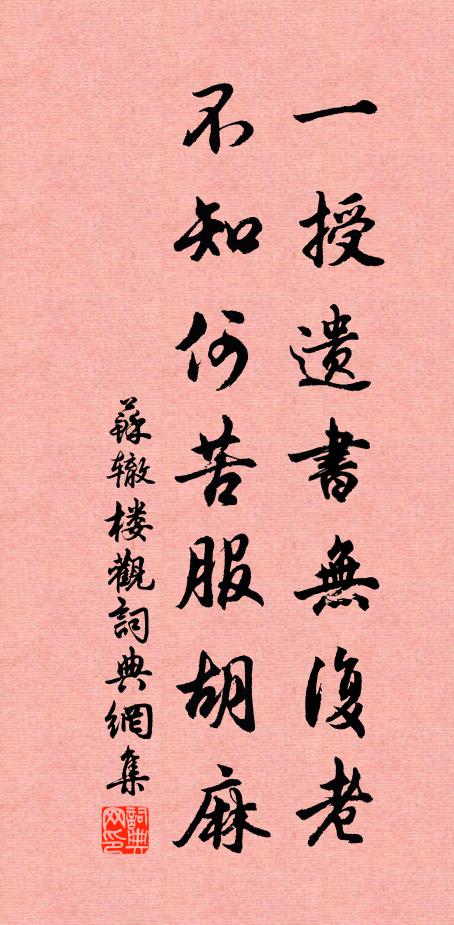 一授遺書無復老
不知何苦服胡麻
蘇辙楼觀詞典網集
詞典网印